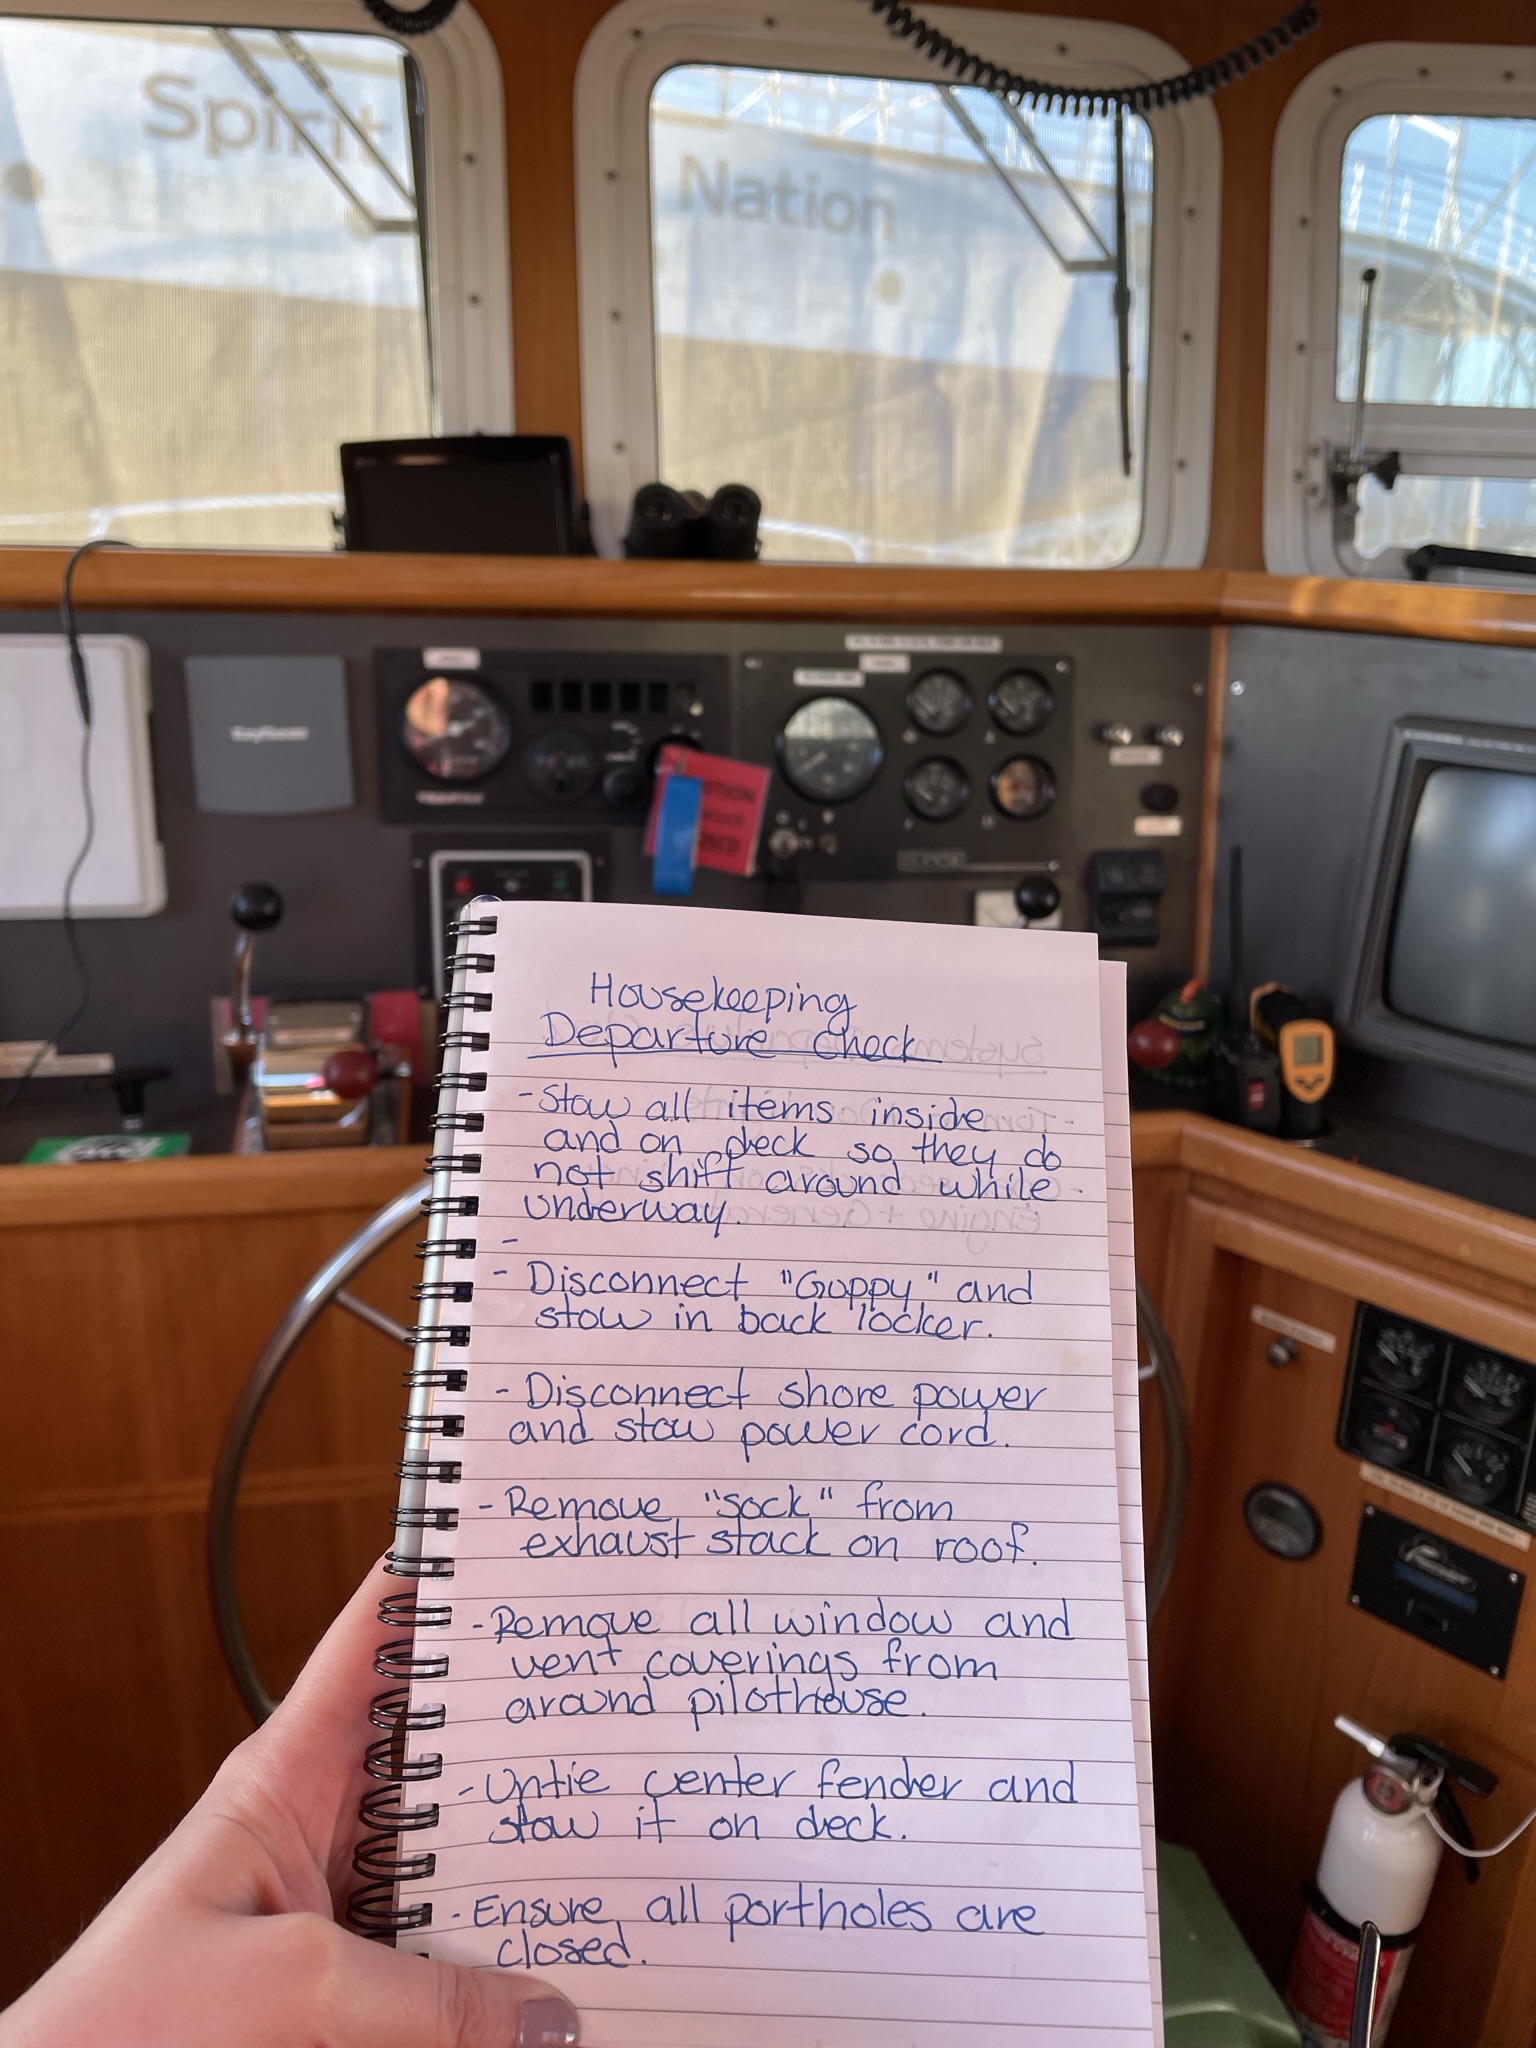 Spirit
Nation
RayTheon
CAUTION
CLOSED
Housekeeping
Departure Check
- Stow all items inside
and on deck so they do
not shift around while
underway.
-
- Disconnect "Guppy" and
stow in back locker.
- Disconnect shore power
and stow power cord.
- Remove "sock" from
exhaust stack on roof.
- Remove all window and
vent coverings from
around pilothouse.
- Untie center fender and
stow it on deck.
- Ensure all portholes are
closed.